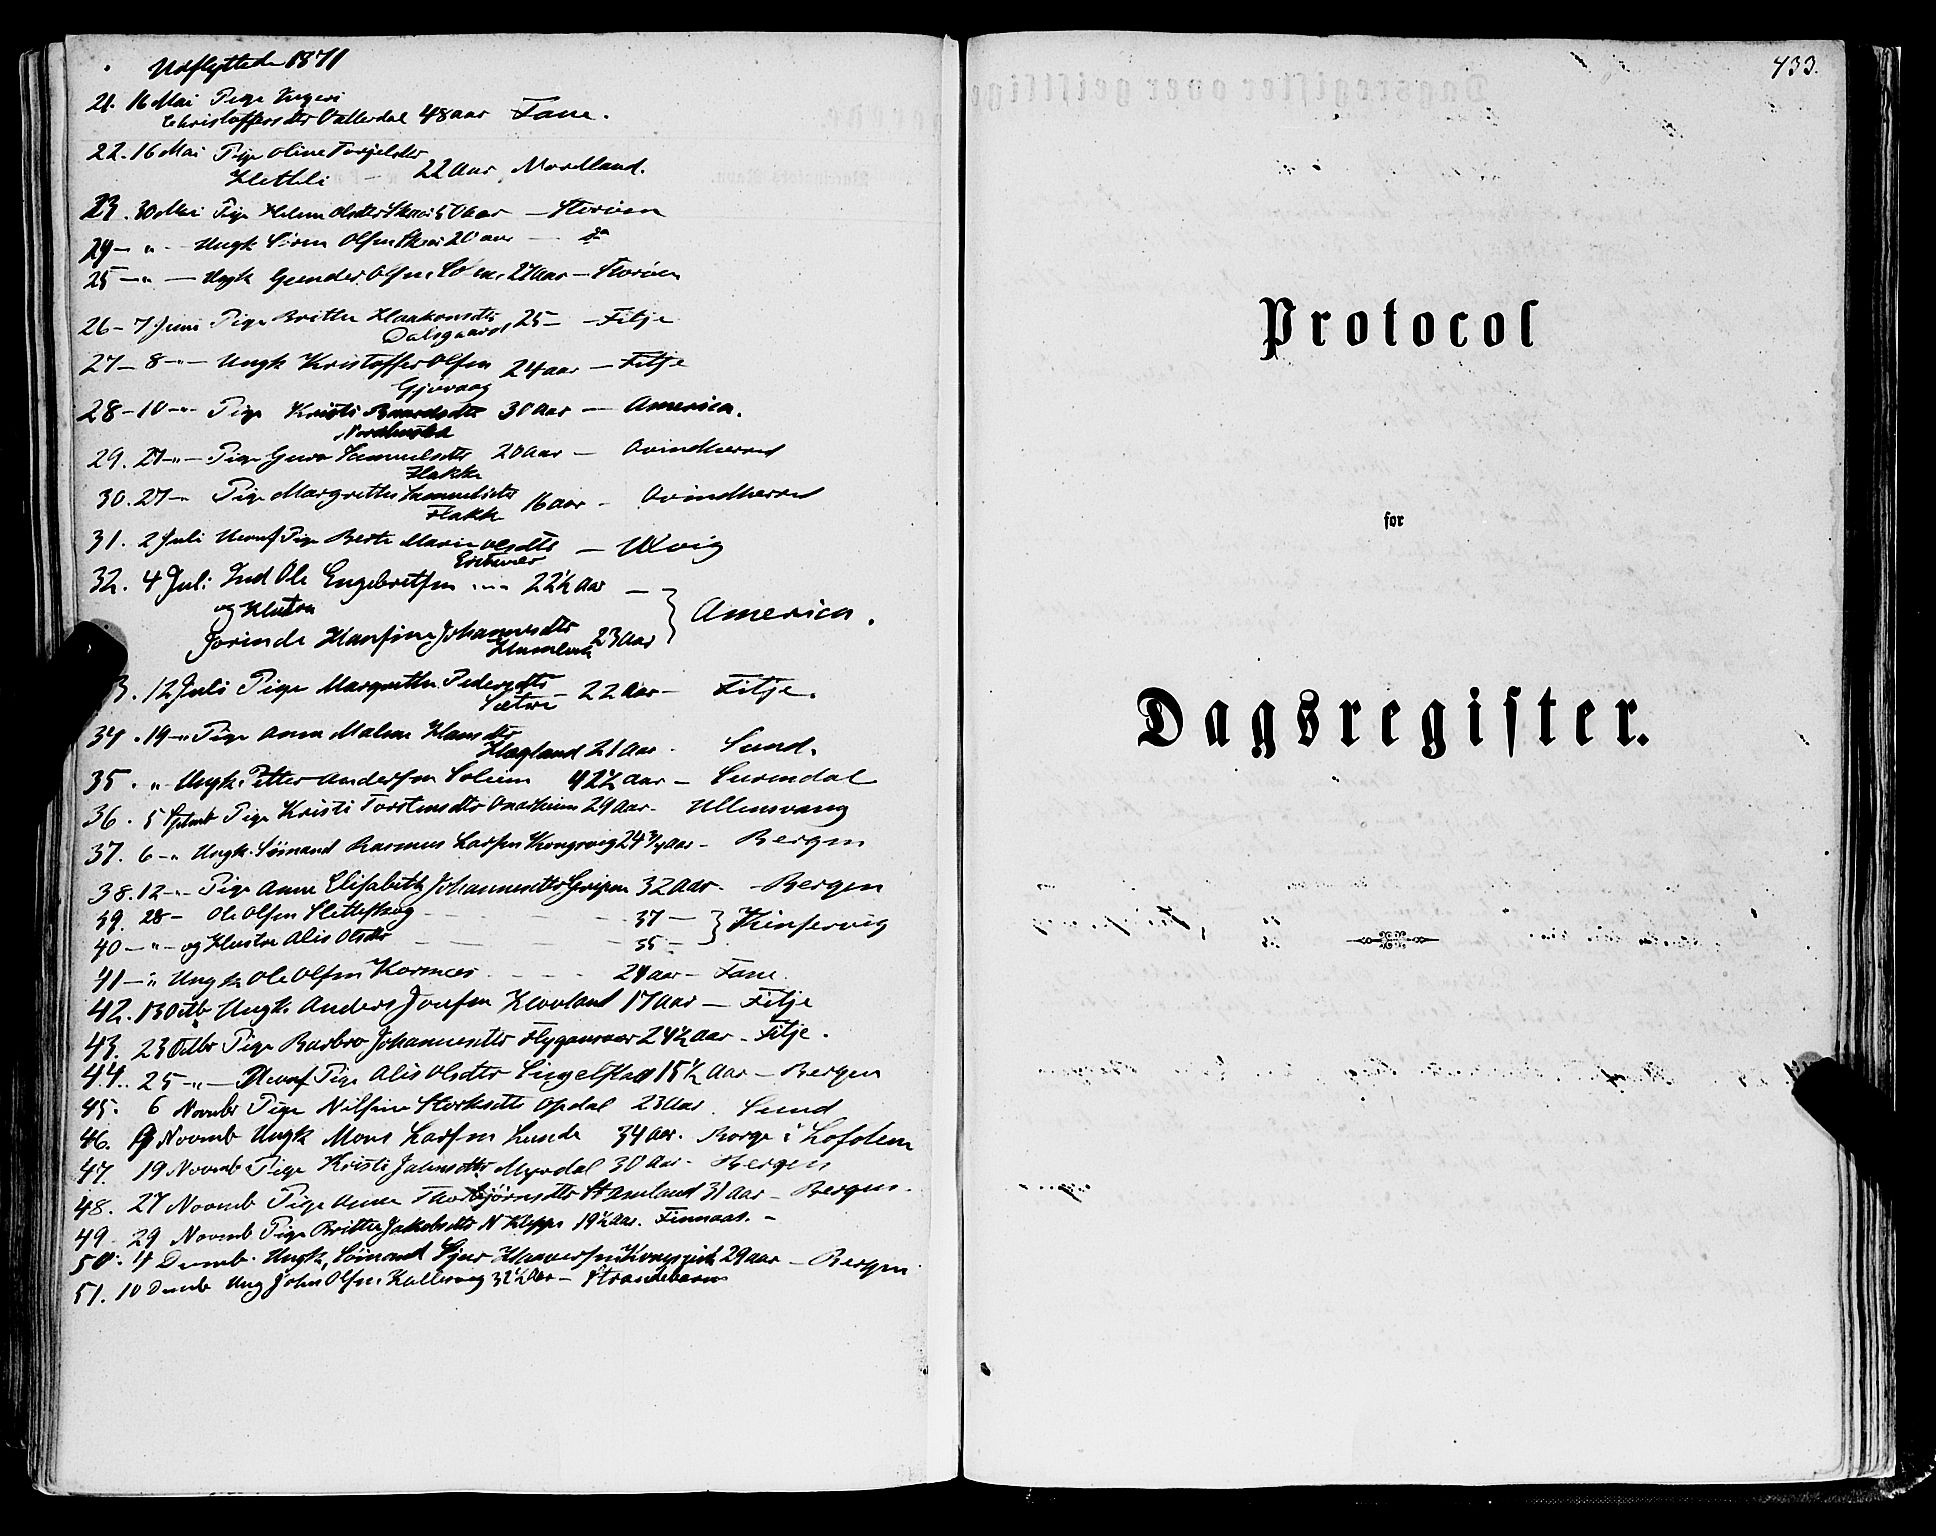 Udflyttede 1871
21. 16 Mai Pige Ingeri
Christoffersdtr Vallerdal 48 aar Fane.
22. 16 Mai Pige Oline Torjelsdtr
Hethli - 22 Aar, Nordland.
23. 30 Mai Pige Helene Olsdtr 50 aar - Storöen
24 - " - Ungk Sören Olsen 20 aar - do
25 - " - Ungk Gunder Olsen 27 Aar - Storöen
26 - 7 Juni Pige Britha Haakonsdtr
Dalsgaard 25 - - Fitje
27 - 8 - " - Ungk Kristoffer Olsen
Gjøvaag 24 aar - Fitje
28 - 10 - " - Pige Kristi Baardsdtr 30 Aar - America.
Nordhuskd
29. 27 - " - Pige Guro Samuelsdtr 20 Aar - Qvindherred
Flakke
30. 27 - " Pige Margrethe Samuelsdtr 16 aar - Qvindherred
Flakke
31. 2 Juli Ukonf Pige Berte Marie Olsdtr - Ulvig
32. 4 Juli Ind Ole Engebretsen 22½ Aar -
og Hustru
Jorinde Hansine Johannesdtr 23 Aar } America.
3. 12 Juli Pige Margrethe Pedersdtr
Sætre - 22 Aar - Fitje.
34. 19 - " Pige Anna Malene Hansdtr
Hagland 21 Aar. Sund.
35. " - Ungk. Petter Andersen Soleim 42½ Aar - Surendal
36. 5 Septmb Pige Kristi Torstensdtr Onarheim 29 Aar. Ullensvang
37. 6 - " Ungk. Söimand Rasmus Larsen Kongsvig 24 3/4 Aar - Bergen
38. 12 - " - Pige Anne Elisabeth Johannesdtr Gripen 32 Aar. - Bergen
39. 28 - Ole Olsen Sletteskog - 37 - } Kinservig
40 - " - og Hustru Alis Olsdtr - 35 -
41 - " Ungk Ole Olsen Kornæs 24 aar - Fane.
42. 13 Octb Ungk. Anders Josefsen Hovland 17 Aar - Fitje
43. 23 Octbr Pige Barbro Johannesdtr Flygansvær 24½ Aar - Fitje.
44. 25 - " - Ukonf Pige Alis Olsdtr Singelstad 15½ Aar - Bergen
45. 6 Novmbr Pige Nilsine Storksdtr Opdal 23 Aar. Sund
46. 9 Novemb Ungk Mons Larsen Lunde 34 Aar. Borge i Lofoten
47. 19 Novemb Pige Kristi Johnsdtr Myrdal 30 Aar - Bergen
48. 27 Novemb Pige Anna Thorbjørnsdtr Stamland 31 Aar - Bergen.
49. 29 Novemb Pige Britha Jakobsdtr N Kleppe 19½ Aar. Finnaas. -
50. 4 Decemb. Ungk, Söimand Sjur Haaversen Kongsvik 29 aar - Bergen
51. 10 Decemb Ung John Olsen Kallevag 32½ Aar - Strandebarm
433.
Protocol
for
Dagsregister.